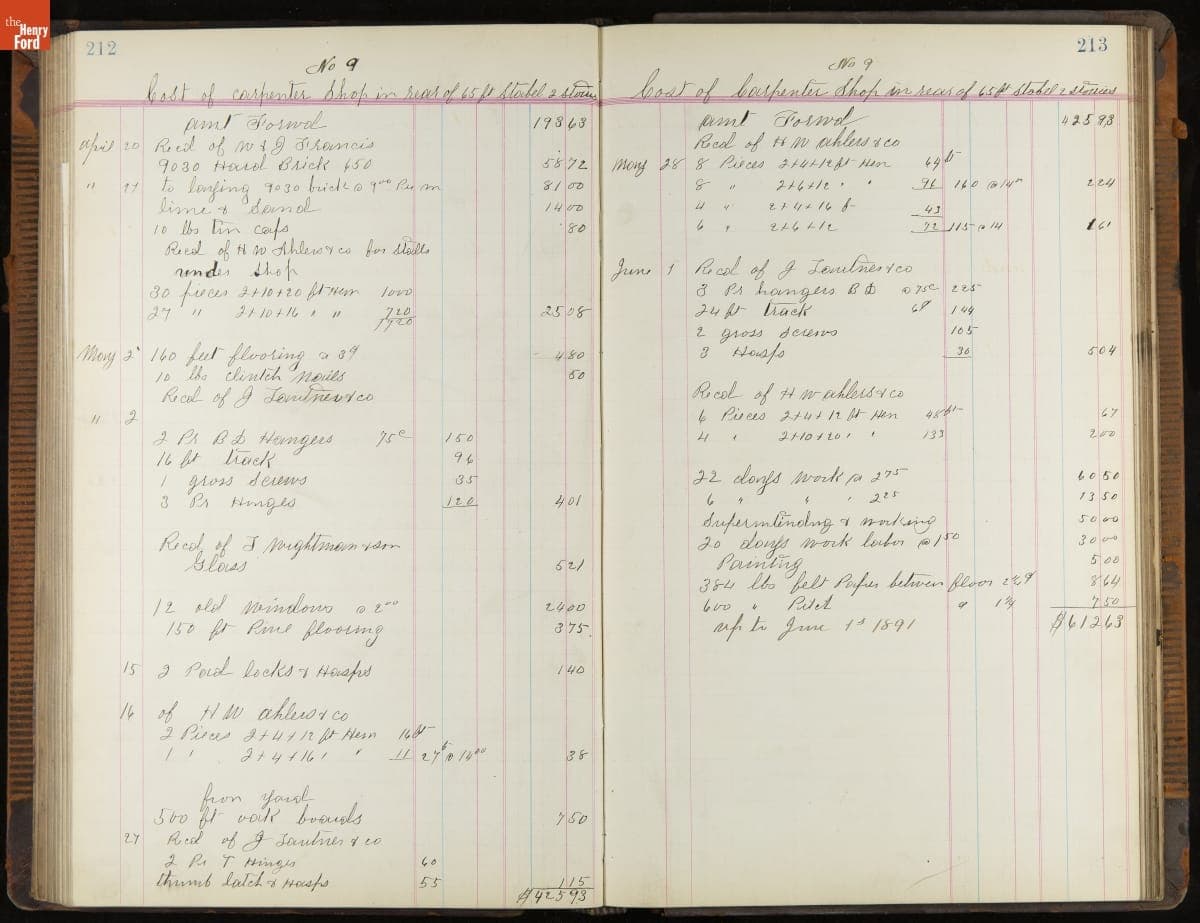 the
Henry
Ford
212
No 9
Cost of carpenter Shop in rear of 65 ft Stabel 2 stories
amt Forwd 19863
april 20 Recd of W & J Francis
9030 Hard Brick 650 5872
" 27 to laying 9030 brick @ 9 00 Per m 8100
lime & Sand 1400
10 lbs tin caps 80
Recd of H W Ahlers & co for Stalls
under Shop
30 pieces 2+10+20 ft Hem 1000
27 " 2+10+16 " " 720 2508
1720
May 2 160 feet flooring @ 3¢ 480
10 lbs clintch nails 50
Recd of J Lautner & co
" 2
2 Pr B D Hangers 75c 150
16 ft track 96
1 gross Screws 35
3 Pr Hinges 120 401
Recd of J Wightman & son
Glass 521
12 old windows @ 2 00 2400
150 ft Pine flooring 375
15 2 Pad locks & Hasps 140
16 of H W ahlers & co
2 Pieces 2+4+12 ft Hem 16 ft
1 " 2+4+16 " " 11 27 ft @ 14 00 38
from yard
500 ft oak boards 750
27 Recd of J Lautner & co
2 Pr T Hinges 60
thumb latch & Hasps 55 115
$42593
213
No 9
Cost of Carpenter Shop in rear of 65 ft Stabel 2 stories
amt Forwd 42593
Recd of H W ahlers & co
May 28 8 Pieces 2+4+12 ft Hem 64 ft
8 " 2+6+12 " " 96 160 @ 14 00 224
4 " 2+4+16 ft 43
6 " 2+6+12 72 115 @ 14 161
June 1 Recd of J Lautner & co
3 Pr hangers B D @ 75c 225
24 ft track 6¢ 144
2 gross Screws 105
3 Hasps 30 504
Recd of H W ahlers & co
6 Pieces 2+4+12 ft Hem 48 ft 67
4 " 2+10+20 " " 133 200
22 days work @ 2 75 6050
6 " " " 2 25 1350
Superintending & working 5000
20 days work labor @ 1 50 3000
Painting 500
384 lbs felt Paper between floor 2¼¢ 864
600 " Pitch @ 1¼ 750
up to June 1st 1891 $61263